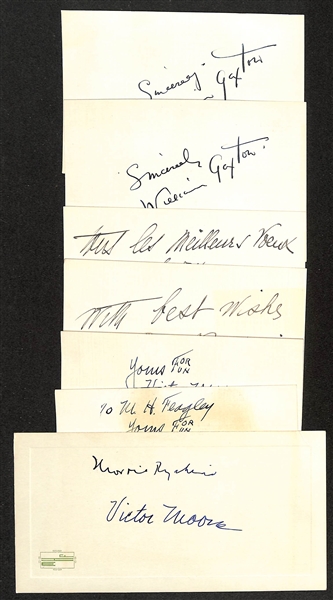 Sincerely
Gaxton
Sincerely
William Gaxton
Tous les Meilleurs Voeux
With best Wishes
Yours FOR
FUN
To M. H. Feagley
Yours FOR
FUN
Morrie Ryskind
Victor Moore